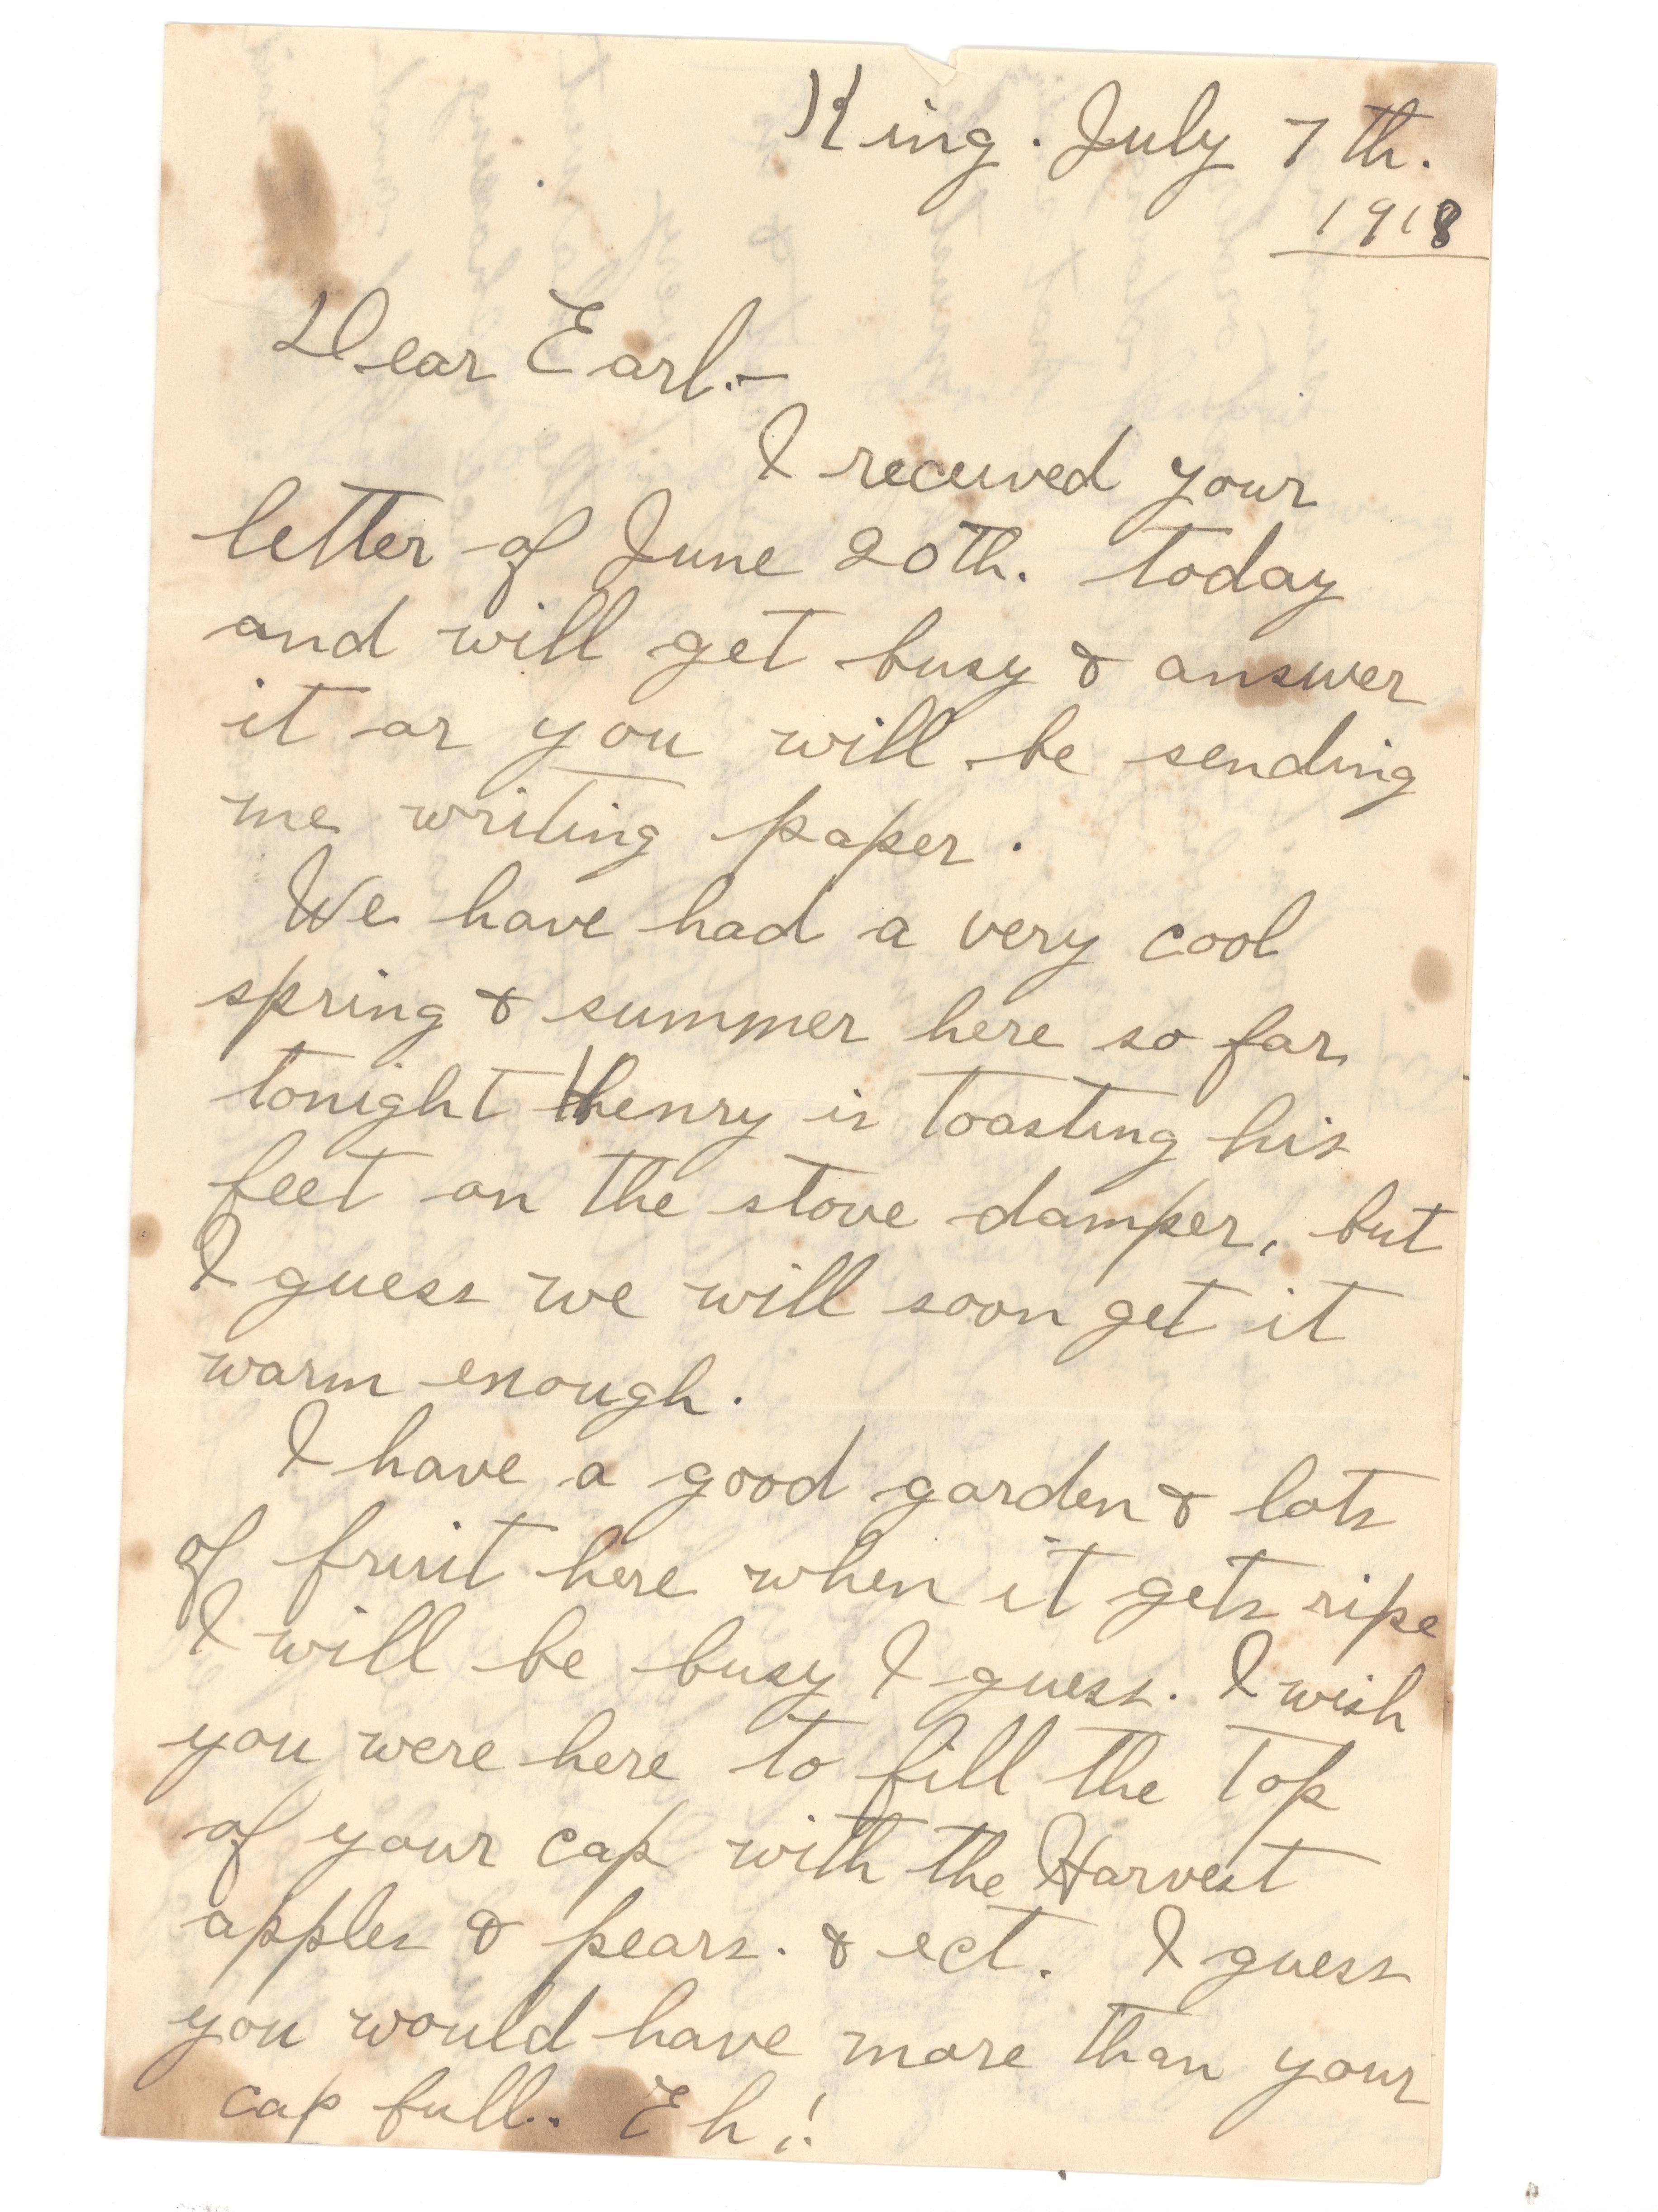 King. July 7th.
1918
Dear Earl.-
I received your
letter of June 20th. today
and will get busy & answer
it or you will be sending
me writing paper.
We have had a very cool
spring & summer here so far
tonight Henry is toasting his
feet on the stove damper, but
I guess we will soon get it
warm enough.
I have a good garden & lots
of fruit here when it gets ripe
I will be busy I guess. I wish
you were here to fill the top
of your cap with the Harvest
apples & pears. & ect. I guess
you would have more than your
cap full.. Eh!